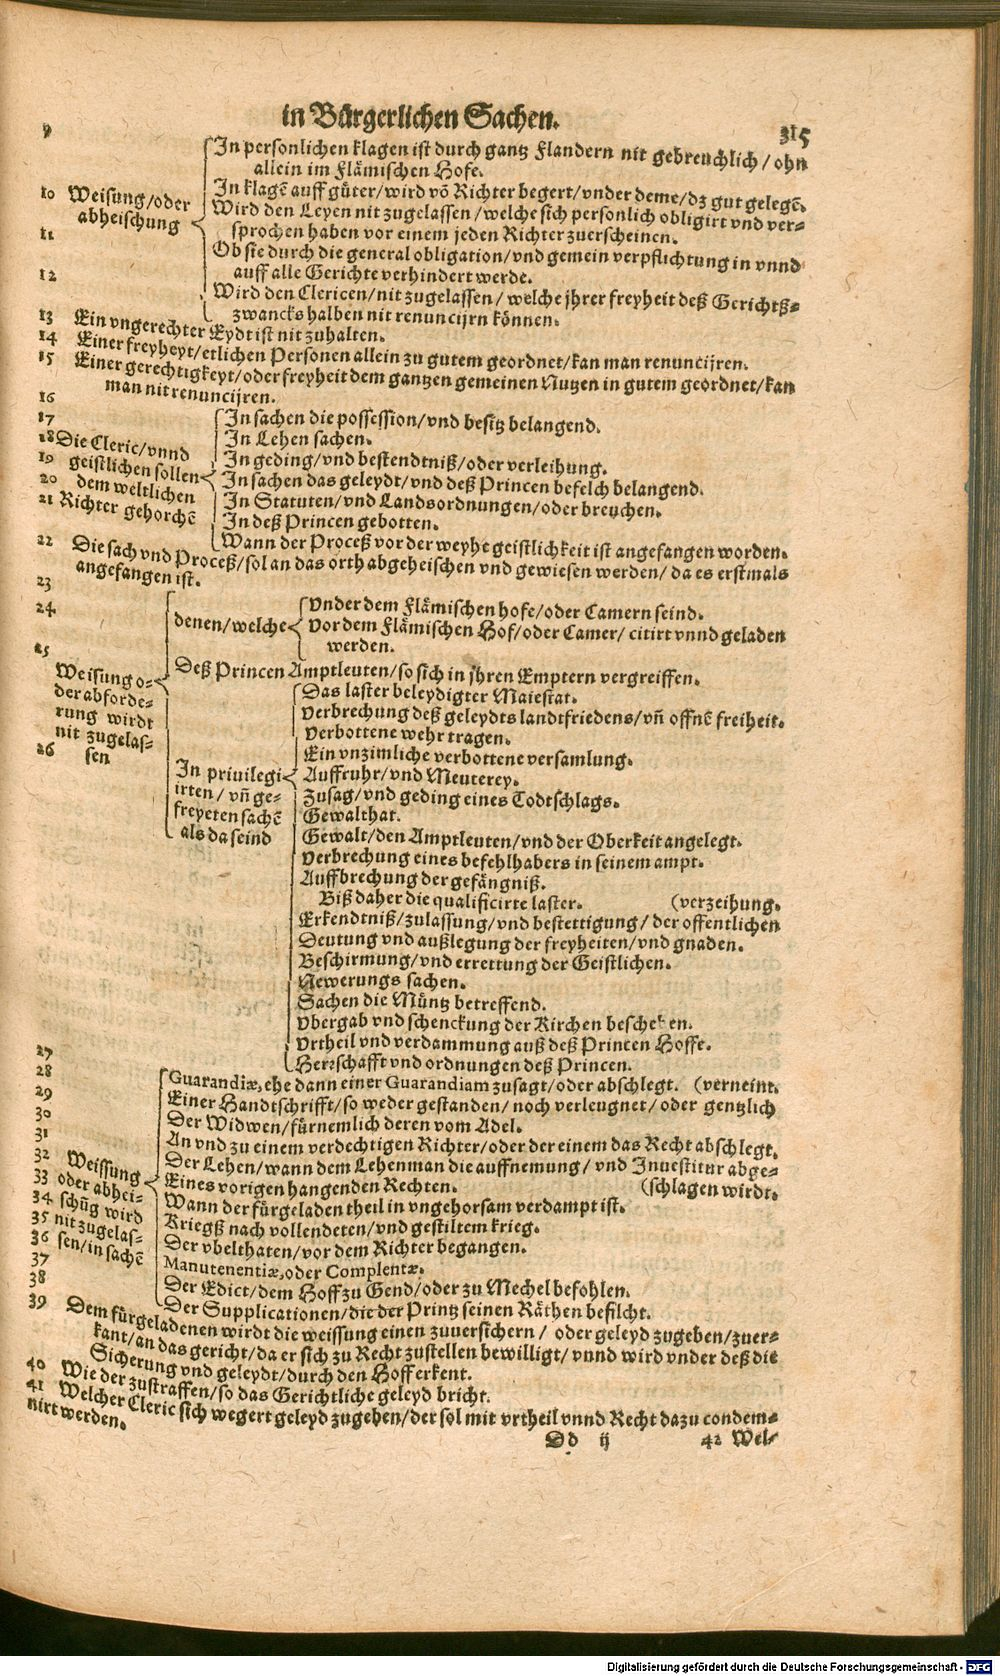 in Bürgerlichen Sachen.
315
9
In personlichen klagen ist durch gantz Flandern nit gebreuchlich / ohn
allein im Flämischen Hofe.
10 Weisung/oder
abheischung
In klagẽ auff güter/wird võ Richter begert/vnder deme/dz gut gelegẽ.
Wird den Leyen nit zugelassen/welche sich personlich obligirt vnd ver-
sprochen haben vor einem jeden Richter zuerscheinen.
11
Ob sie durch die general obligation/vnd gemein verpflichtung in vnnd
auff alle Gerichte verhindert werde.
12
Wird den Clericen/nit zugelassen/ welche jhrer freyheit deß Gerichtß-
zwancks halben nit renuncijrn können.
13 Ein vngerechter Eydt ist nit zuhalten.
14 Einer freyheyt/etlichen Personen allein zu gutem geordnet/kan man renuncijren.
15 Einer gerechtigkeyt/oder freyheit dem gantzen gemeinen Nutzen in gutem geordnet/kan
man nit renuncijren.
16
17
18 Die Cleric/vnnd
19 geistlichen sollen
20 dem weltlichen
21 Richter gehorchẽ
In sachen die possession/vnd besitz belangend.
In Lehen sachen.
In geding/vnd bestendtniß/oder verleihung.
In sachen das geleydt/vnd deß Princen befelch belangend.
In Statuten/vnd Landsordnungen/oder breuchen.
In deß Princen gebotten.
Wann der Proceß vor der weyhe geistlichkeit ist angefangen worden.
22 Die sach vnd Proceß/sol an das orth abgeheischen vnd gewiesen werden/ da es erstmals
angefangen ist.
23
24
25
Weisung o-
der abforde-
rung wirdt
nit zugelas-
26 sen
denen/welche
Vnder dem Flämischen hofe/oder Camern seind.
Vor dem Flämischen Hof/oder Camer/ citirt vnnd geladen
werden.
Deß Princen Amptleuten/so sich in jhren Emptern vergreiffen.
In privilegi-
irten/ vñ ge-
freyeten sachẽ
als da seind
Das laster beleydigter Maiestat.
Verbrechung deß geleydts landtfriedens/vñ offnẽ freiheit.
Verbottene wehr tragen.
Ein vnzimliche verbottene versamlung.
Auffruhr/vnd Meuterey.
Zusag/vnd geding eines Todtschlags.
Gewalthat.
Gewalt/den Amptleuten/vnd der Oberkeit angelegt.
Verbrechung eines befehlhabers in seinem ampt.
Auffbrechung der gefängniß.
Biß daher die qualificirte laster. (verzeihung.
Erkendtniß/zulassung/vnd bestettigung/ der offentlichen
Deutung vnd außlegung der freyheiten/vnd gnaden.
Beschirmung/vnd errettung der Geistlichen.
Newerungs sachen.
Sachen die Müntz betreffend.
Vbergab vnd schenckung der Kirchen
Vrtheil vnd verdammung auß deß Princen Hoffe.
Herrschafft vnd ordnungen deß Princen.
27
28
29
30
31
32 Weissung
33 oder abhei-
34 schũg wird
35 nit zugelas-
36 sen/in sachẽ
37
38
Guarandiæ, ehe dann einer Guarandiam zusagt/oder abschlegt. (verneint.
Einer Handtschrifft/so weder gestanden/ noch verleugnet/ oder gentzlich
Der Widwen/fürnemlich deren vom Adel.
An vnd zu einem verdechtigen Richter/oder der einem das Recht abschlegt.
Der Lehen/wann dem Lehenman die auffnemung/ vnd Inuestitur abge-
Eines vorigen hangenden Rechten. (schlagen wirdt.
Wann der fürgeladen theil in vngehorsam verdampt ist.
Kriegß nach vollendeten/vnd gestiltem krieg.
Der vbelthaten/vor dem Richter begangen.
Manutenentiæ, oder Complentæ.
Der Edict/dem Hoff zu Gend/oder zu Mechel befohlen.
Der Supplicationen/die der Printz seinen Räthen befilcht.
39 Dem fürgeladenen wirdt die weissung einen zuuersichern/ oder geleyd zugeben/zuer-
kant/an das gericht/da er sich zu Recht zustellen bewilligt/vnnd wird vnder deß die
Sicherung vnd geleydt/durch den Hoff erkent.
40 Wie der zustraffen/so das Gerichtliche geleyd bricht.
41 Welcher Cleric sich wegert geleyd zugeben/der sol mit vrtheil vnnd Recht dazu condem-
nirt werden.
Dd ij
42 Wel-
Digitalisierung gefördert durch die Deutsche Forschungsgemeinschaft - DFG